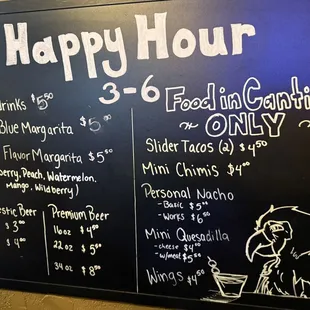 Happy Hour
3-6
drinks $5.50
Blue Margarita $5.00
Flavor Margarita $5.50
Peach, Watermelon,
Mango, Wildberry)
Beer
$3.00
$4.00
Premium Beer
16oz $4.00
22oz $5.00
34oz $8.00
Food in
~ ONLY ~
Slider Tacos (2) $4.50
Mini Chimis $4.00
Personal Nacho
- Basic $5.00
- Works $6.50
Mini Quesadilla
- cheese $4.00
- w/meat $5.00
Wings $4.50